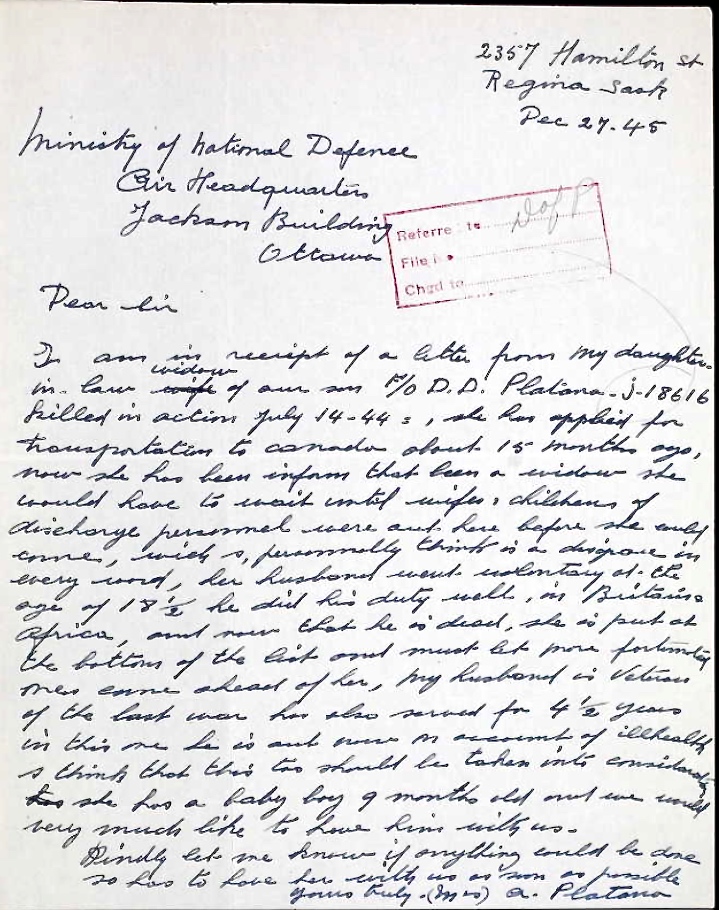 2357 Hamilton St
Regina Sask
Dec 27-45
Ministry of National Defence
Air Headquarters
Jackson Building
Ottawa
Referre to D of P
File No
Chgd to
Dear Sir
I am in receipt of a letter from my daughter-
in-law wife widow of our son F/O D.D. Platana-J-18616
killed in action July 14-44 = , she has applied for
transportation to canada about 15 months ago,
now she has been inform that been a widow she
would have to wait until wifes & childrens of
discharge personnel were out here before she could
come, wich I, personnally think is a disgrace in
every word, her husband went volontary at the
age of 18½ he did his duty well, in Britain &
Africa, and now that he is dead, she is put at
the bottom of the list and must let more fortunate
ones come ahead of her, my husband is Veteran
of the last war has also served for 4½ years
in this one he is out now on account of illhealth
I think that this too should be taken into consideration
she has a baby boy 9 months old and we would
very much like to have him with us.
Kindly let me know if anything could be done
so has to have her with us as soon as possible
yours truly - (Mrs) A. Platana